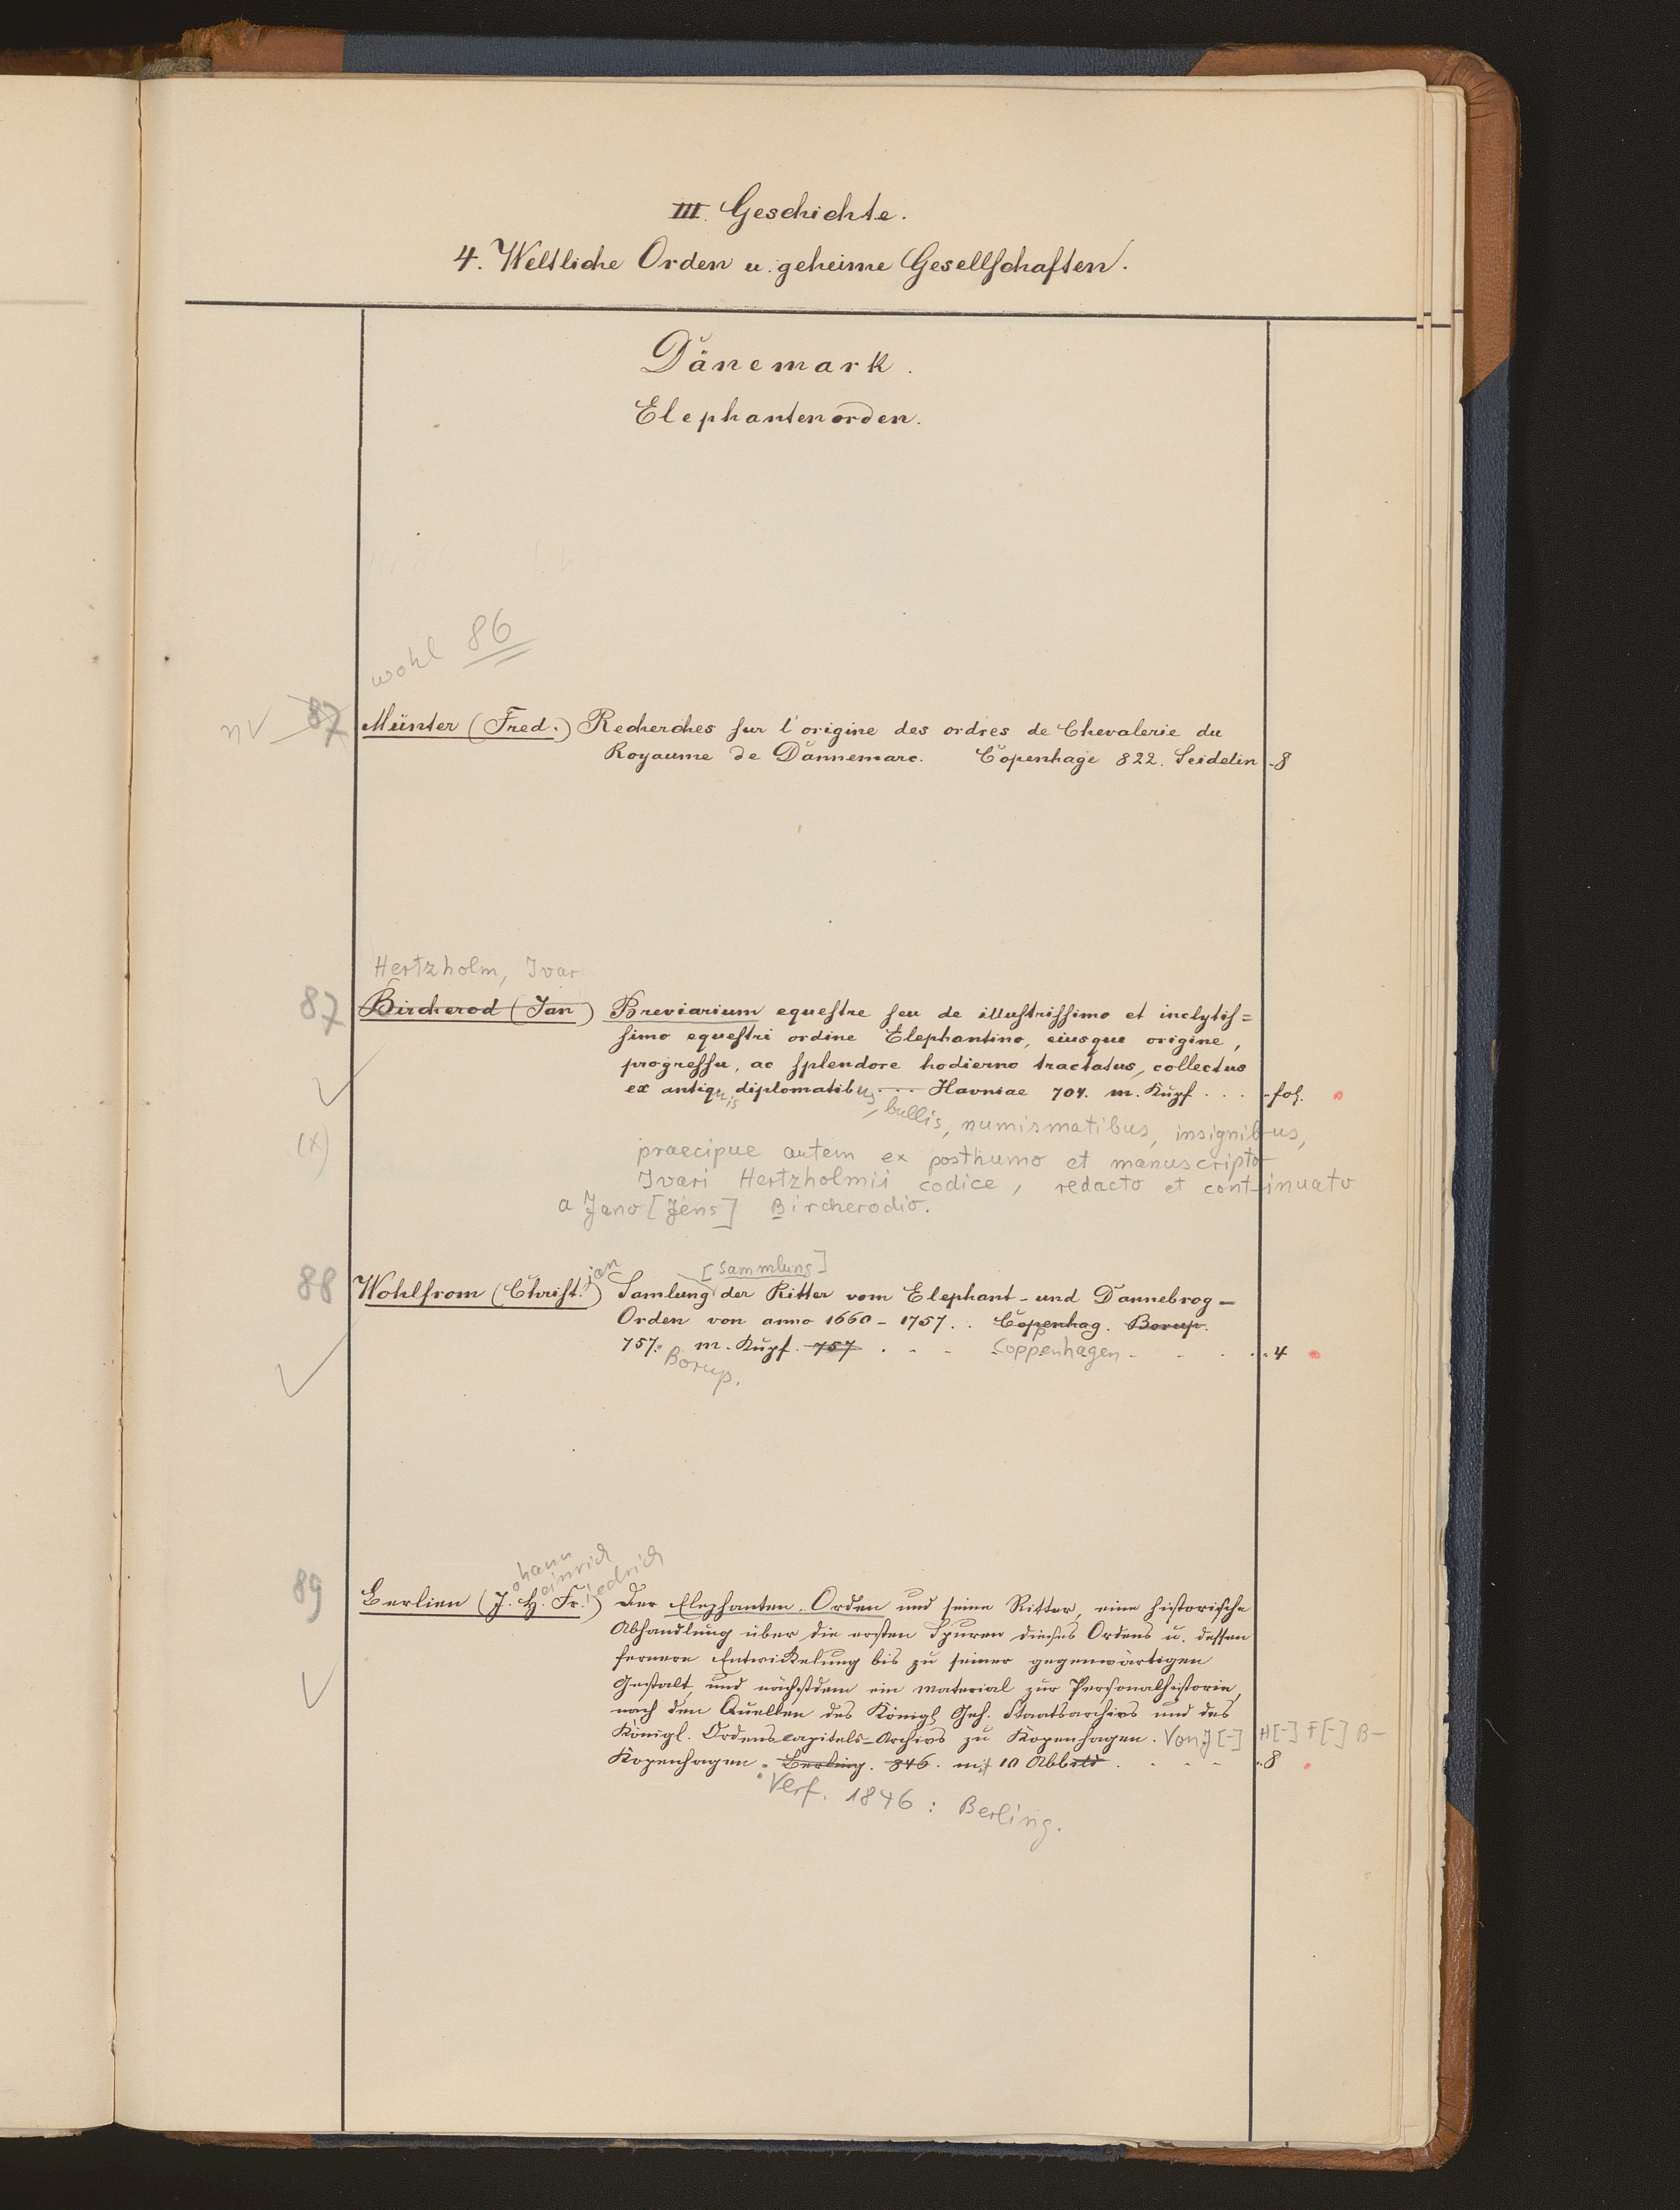 III. Geschichte.
4. Weltliche Orden u. geheime Gesellschaften.
Dänemark.
Elephantenorden.
wohl 86
nv 87 Münter (Fred.) Recherches sur l'origine des ordres de Chevalerie du
Royaume de Dannemarc. Copenhage 822. Seidelin - 8
Hertzholm, Ivar
87 Bircherod (Jan) Breviarium equestre seu de illustrissimo et inclytis=
simo equestri ordine Elephantino, eiusque origine,
progressu, ac splendore hodierno tractatus, collectus
ex antiquis diplomatibus . . . Havniae 704. m. Kupf . . . fol.
(x) , bullis, numismatibus, insignibus,
praecipue autem ex posthumo et manuscripto
Ivari Hertzholmii codice, redacto et continuato
a Jano [Jens] Bircherodio.
[Sammlung]
88 Wohlfrom (Christ.ian) Samlung der Ritter vom Elephant- und Dannebrog-
Orden von anno 1660 - 1757 . . Copenhag. Borup.
757. m. Kupf. 757 . - - Coppenhagen - - . . . 4
Borup.
ohann einrich iedrich
89 Berlien (J. H. Fr.) Der Elephanten-Orden und seine Ritter, eine historische
Abhandlung über die ersten Spuren dieses Ordens u. dessen
fernere Entwickelung bis zu seiner gegenwärtigen
Gestalt, und nächstdem ein Material zur Personalhistorie,
nach den Quellen des Königl. Geh. Staatsarchivs und des
Königl. Ordenscapitels-Archivs zu Kopenhagen. Von J[-] H[-] F[-] B-
Kopenhagen. Berling. 846. mit 10 Abbild . - - - . . 8
Verf. 1846 : Berling.